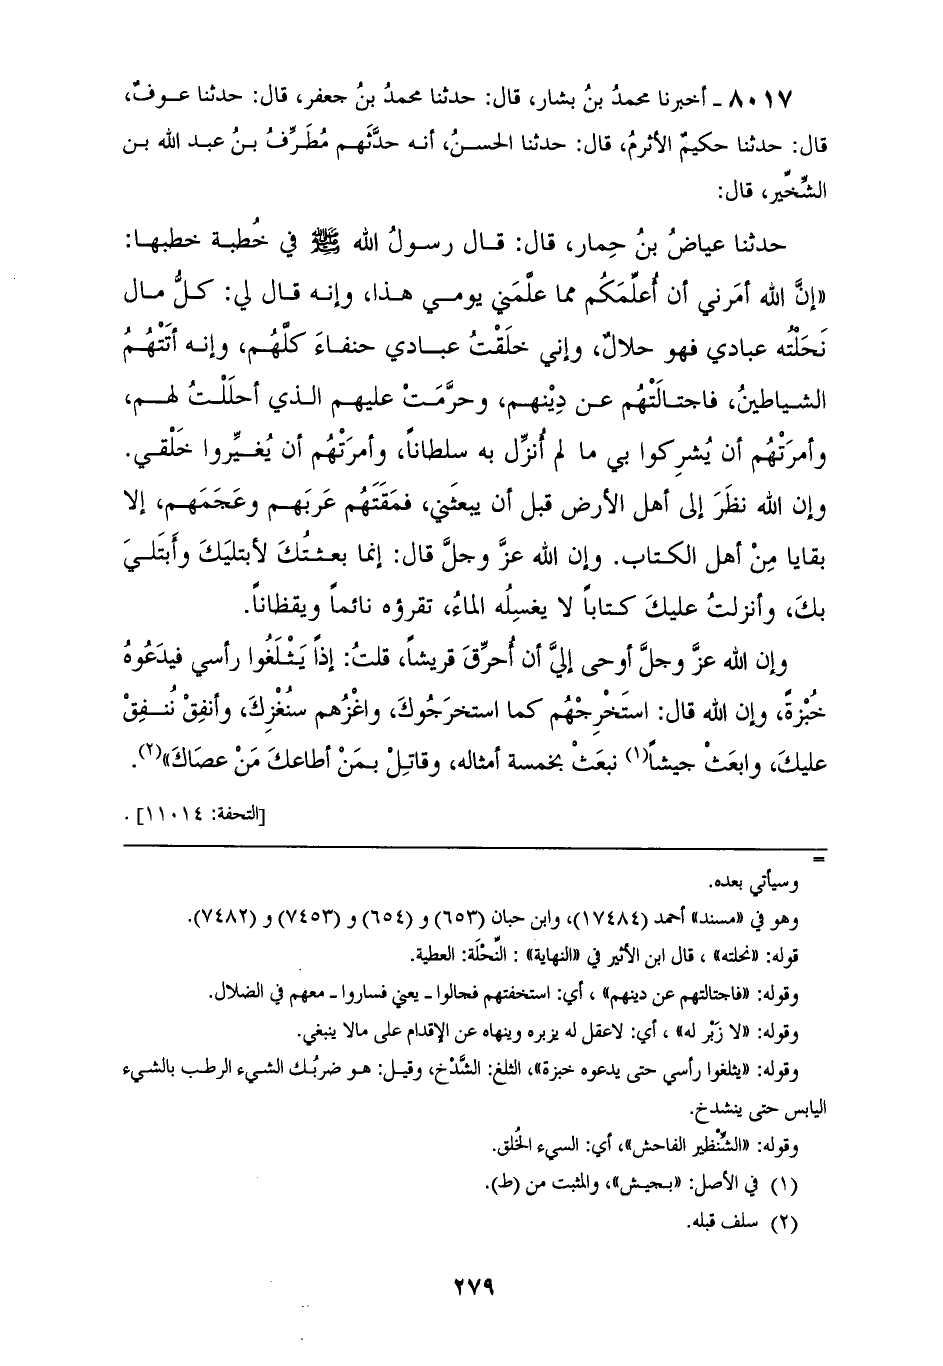 ٨٠١٧ ـ أخبرنا محمدُ بنُ بشار، قال: حدثنا محمدُ بنُ جعفر، قال: حدثنا عـوفٌ،
قال: حدثنا حكيمٌ الأثرمُ، قال: حدثنا الحسنُ، أنه حدَّثَهم مُطَرِّفُ بنُ عبد الله بن
الشِّخِّير، قال:
حدثنا عياضُ بنُ حِمار، قال: قال رسولُ الله ﷺ في خُطبة خطبها:
«إنَّ الله أمَرني أن أُعلِّمَكُم مما علَّمَني يومي هذا، وإنه قال لي: كلُّ مال
نَحَلْتُه عبادي فهو حلالٌ، وإني خلَقْتُ عبادي حنفاءَ كلَّهُم، وإنه أتَتْهُمُ
الشياطينُ، فاجتالَتْهُم عن دِيْنهم، وحرَّمَتْ عليهم الذي أحلَلْتُ لهم،
وأمرَتْهُم أن يُشرِكوا بي ما لم أُنزِّل به سلطاناً، وأمرَتْهُم أن يُغيِّروا خَلْقي.
وإن الله نظَرَ إلى أهل الأرض قبل أن يبعثَني، فمَقَتَهُم عَربَهم وعَجَمَهم، إلا
بقايا مِنْ أهل الكتاب. وإن الله عزَّ وجلَّ قال: إنما بعثتُكَ لأبتليَكَ وأبتَليَ
بكَ، وأنزلتُ عليكَ كتاباً لا يغسِلُه الماءُ، تقرؤه نائماً ويقظاناً.
وإن الله عزَّ وجلَّ أوحى إليَّ أن أُحرِّقَ قريشاً، قلتُ: إذاً يَثْلَغُوا رأسي فيدَعُوهُ
خُبْزةً، وإن الله قال: استَخْرِجْهُم كما استخرَجُوكَ، واغْزُهم سنُغْزِكَ، وأنفِقْ نُنفِقْ
عليكَ، وابعَثْ جيشاً(١) نبعَثْ بخمسة أمثاله، وقاتِلْ بمَنْ أطاعكَ مَنْ عصاكَ»(٢).
[التحفة: ١١٠١٤] .
=
وسيأتي بعده.
وهو في «مسند» أحمد (١٧٤٨٤)، وابن حبان (٦٥٣) و (٦٥٤) و (٧٤٥٣) و (٧٤٨٢).
قوله: «نحلته» ، قال ابن الأثير في «النهاية» : النِّحْلَة: العطية.
وقوله: «فاجتالتهم عن دينهم» ، أي: استخفتهم فجالوا ـ يعني فساروا ـ معهم في الضلال.
وقوله: «لا زَبْر له» ، أي: لاعقل له يزبره وينهاه عن الإقدام على مالا ينبغي.
وقوله: «يثلغوا رأسي حتى يدعوه خبزة»، الثلغ: الشَّدْخ، وقيل: هو ضربُك الشيء الرطب بالشيء
اليابس حتى ينشدخ.
وقوله: «الشِّنْظير الفاحش»، أي: السيء الخُلق.
(١) في الأصل: «بجيش»، والمثبت من (ط).
(٢) سلف قبله.
٢٧٩